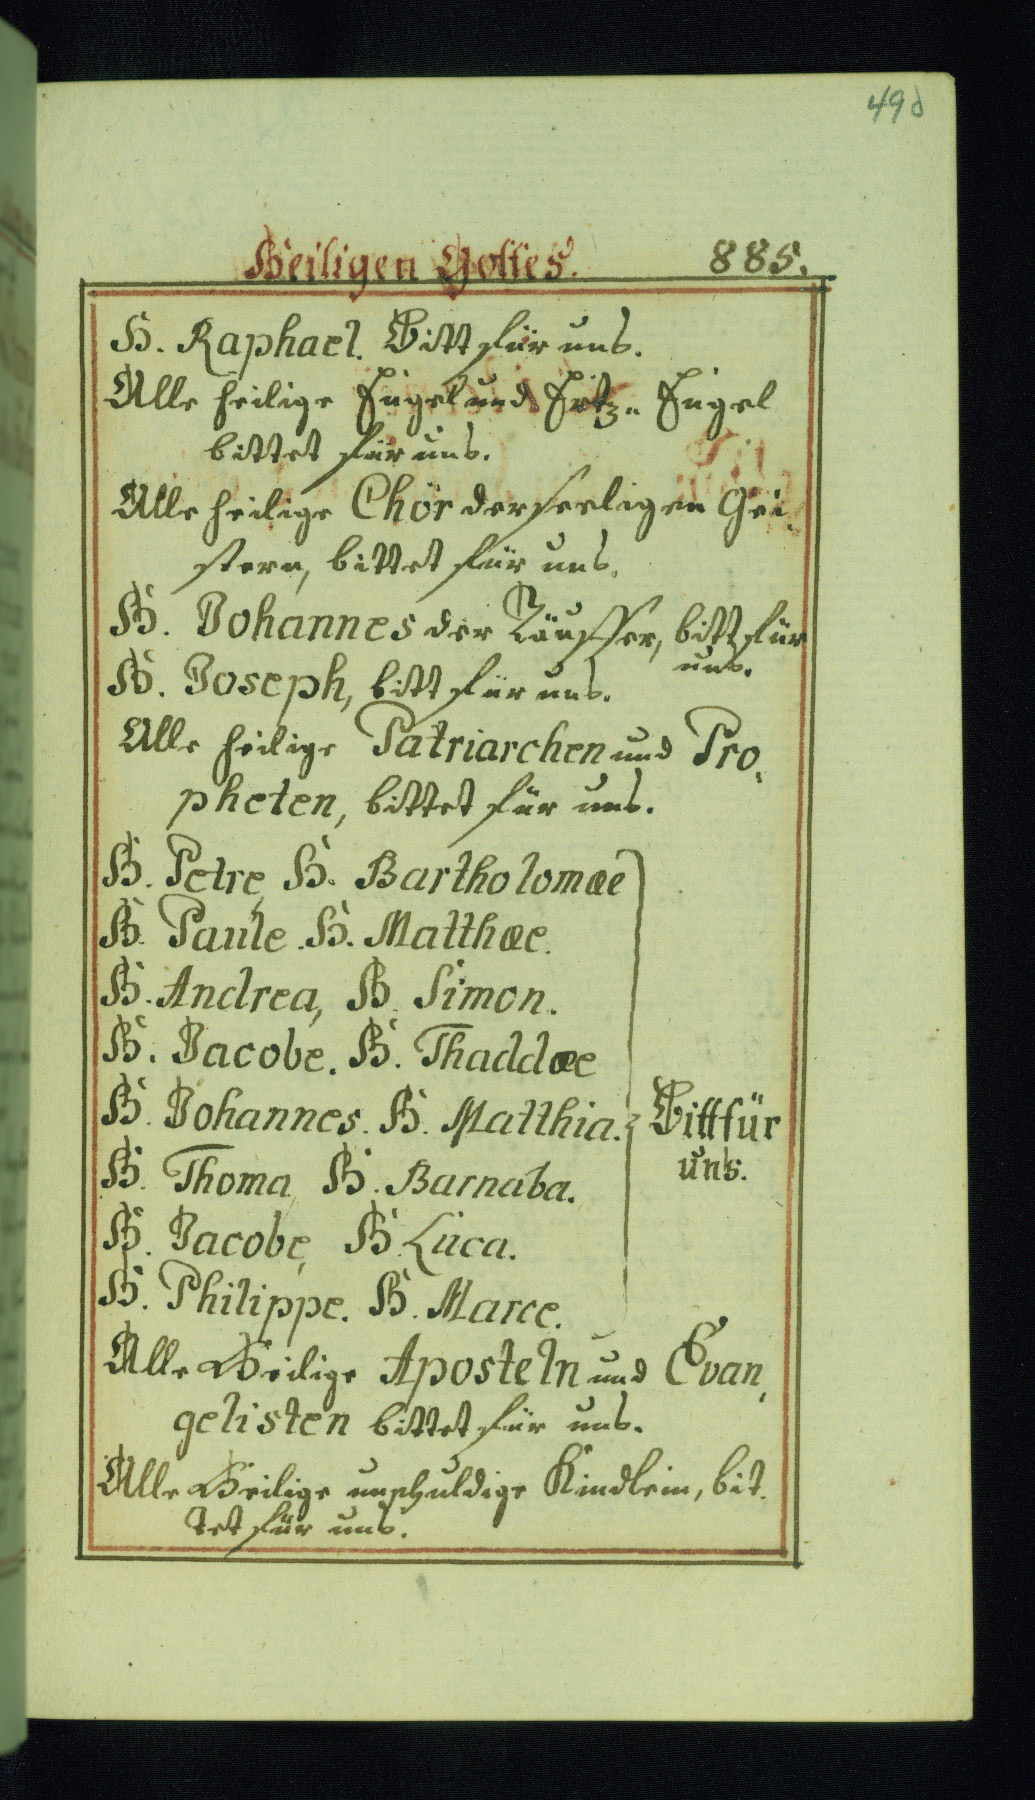 498
Heiligen Gottes.
885.
H. Raphael. Bitt für uns.
Alle heilige Engel und Ertz- Engel
bittet für uns.
Alle heilige Chör der seeligen Gei-
stern, bittet für uns.
H. Johannes der Täuffer, bitt für
uns.
H. Joseph, bitt für uns.
Alle heilige Patriarchen und Pro-
pheten, bittet für uns.
H. Petre, H. Bartholomæe
H. Paule. H. Matthæe.
H. Andrea, H. Simon.
H. Jacobe. H. Thaddæe
H. Johannes. H. Matthia.
H. Thoma, H. Barnaba.
H. Jacobe, H. Luca.
H. Philippe. H. Marce.
Bitt für
uns.
Alle Heilige Aposteln und Evan-
gelisten bittet für uns.
Alle Heilige unschuldige Kindlein, bit-
tet für uns.